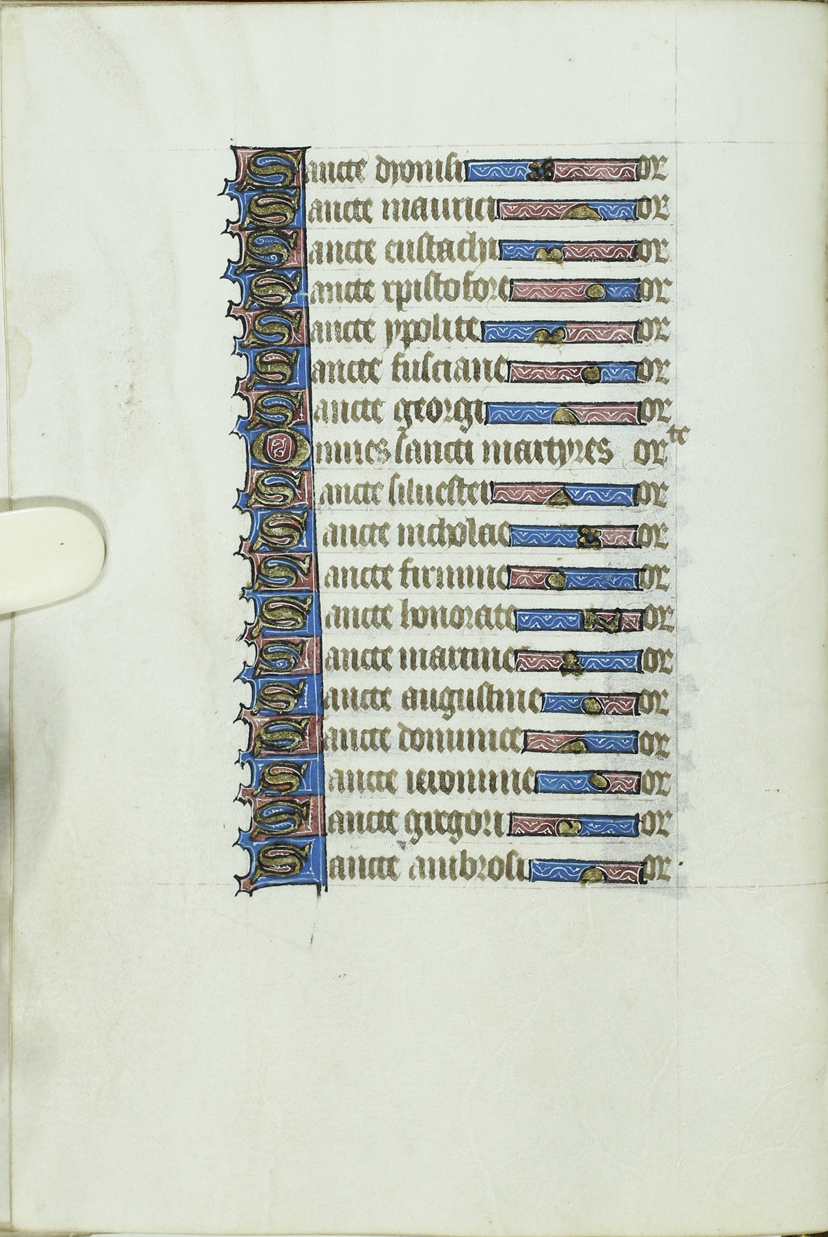 Sancte dyonisi or
Sancte maurici or
Sancte eustachi or
Sancte xpistofore or
Sancte ypolite or
Sancte fusciane or
Sancte georgi or
Omnes sancti martyres orte
Sancte siluester or
Sancte nicholae or
Sancte firmine or
Sancte honorate or
Sancte martine or
Sancte augustine or
Sancte dominice or
Sancte ieronime or
Sancte gregori or
Sancte ambrosi or